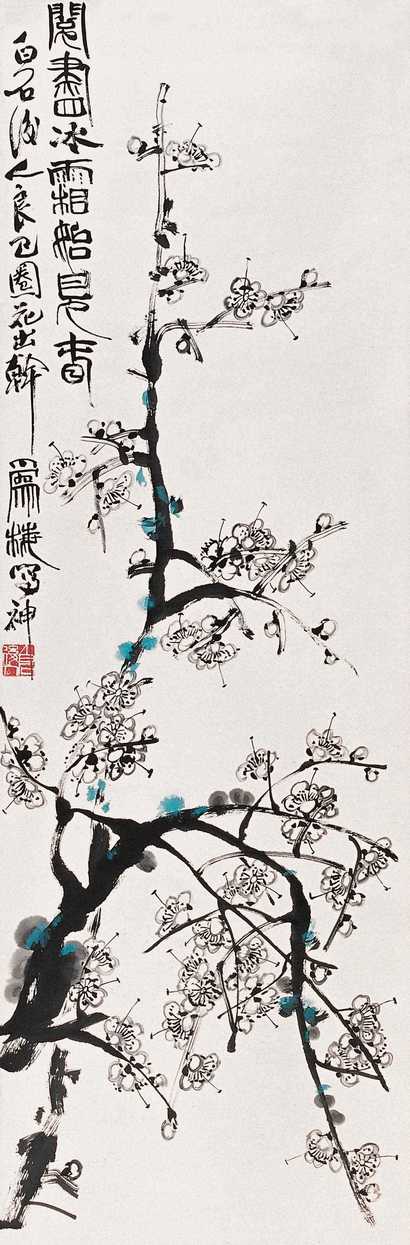 閱盡冰霜始見春
白石後人良已圈花出幹為梅寫神